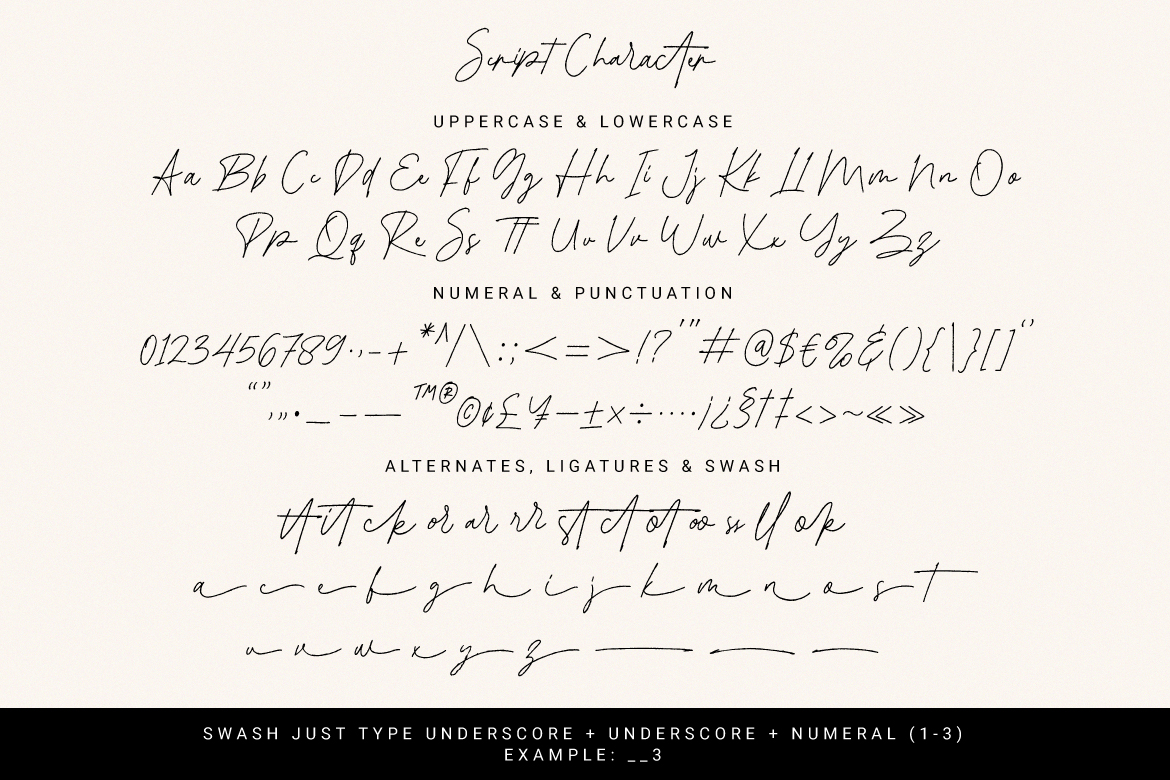 Script Character
UPPERCASE & LOWERCASE
Aa Bb Cc Dd Ee Ff Gg Hh Ii Jj Kk Ll Mm Nn Oo
Pp Qq Rr Ss Tt Uu Vv Ww Xx Yy Zz
NUMERAL & PUNCTUATION
0123456789.,-+*^/\:;<=>!?'"#@$€%&(){|}[]‘’
“”‚„•_–—™®©¢£¥−±×÷····¡¿§†‡<>~«»
ALTERNATES, LIGATURES & SWASH
tt it ck or ar rr st ct ot oo ss ll ok
a c e f g h i j k m n o s t
u v w x y z
SWASH JUST TYPE UNDERSCORE + UNDERSCORE + NUMERAL (1-3)
EXAMPLE: __3